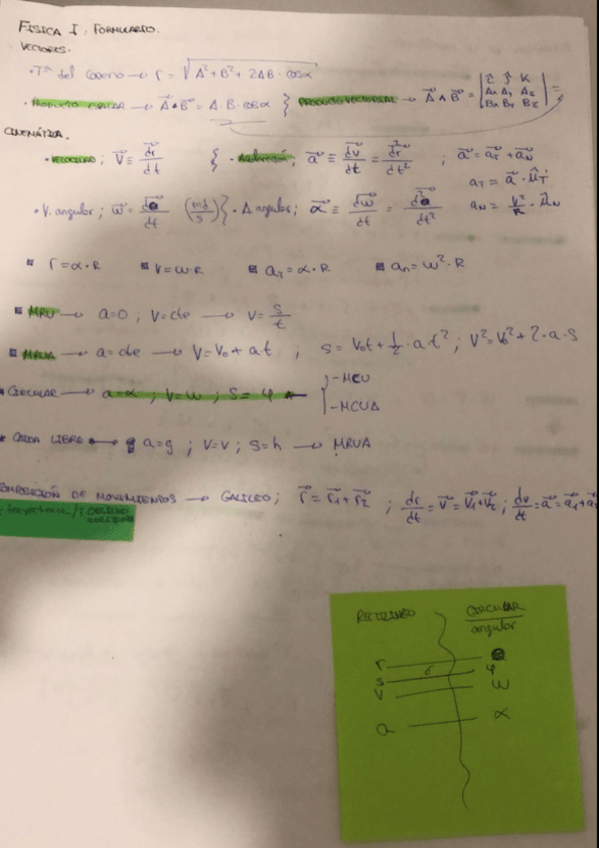 FÍSICA I. FORMULARIO.
VECTORES.
· Tª del Coseno → r = √(A² + B² + 2AB · cosα)
· PRODUCTO ESCALAR → A⃗ · B⃗ = A · B · cosα } PRODUCTO VECTORIAL → A⃗ ∧ B⃗ = | î ĵ K̂ ; Ax Ay Az ; Bx By Bz | =
CINEMÁTICA.
· VELOCIDAD ; v⃗ ≡ dr⃗/dt { · Aceleración ; a⃗ ≡ dv⃗/dt = d²r⃗/dt² ; a⃗ = a⃗T + a⃗N
aT = a⃗ · μ̂T
· V. angular ; w⃗ = /dt (rad/s) } · A angular ; α⃗ ≡ dw⃗/dt = /dt² aN = V²/R · μ̂N
r = α · R V = w · R aT = α · R an = w² · R
MRU → a = 0 , V = cte → V = s/t
MRUA → a = cte → V = V₀ + a·t ; S = V₀t + ½ · a · t² ; V² = V₀² + 2 · a · s
CIRCULAR → a = α ; V = w ; S = φ ← { - MCU
- MCUA
CAIDA LIBRE → a = g ; V = v ; S = h → MRUA
COMPOSICIÓN DE MOVIMIENTOS → GALILEO ; r⃗ = r⃗1 + r⃗2 ; dr/dt = v⃗ = v⃗1 + v⃗2 ; dv/dt = a⃗ = a⃗1 + a⃗
RECTILINEO CIRCULAR
angular
r
s φ
v w
a α